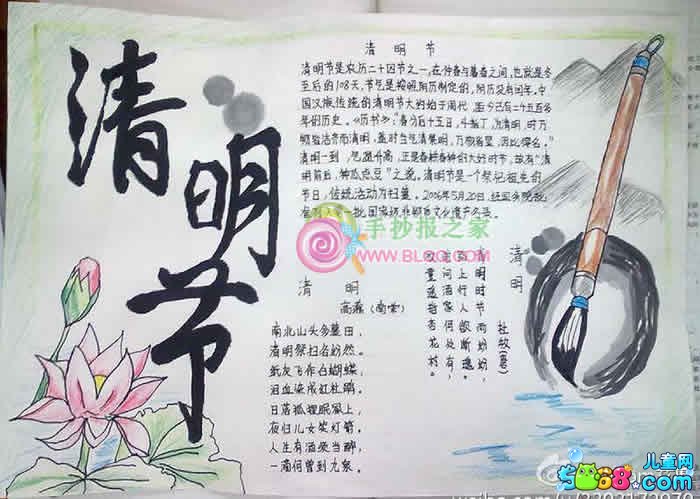 清明节
清 明 节
清明节是农历二十四节之一,在仲春与暮春之间,也就是冬
至后的108天,节气是按照阳历制定的,阴历没有闰年,中
国汉族传统的清明节大约始于周代,距今已有二千五百多
年的历史。《历书》:"春分后十五日,斗指丁,为清明,时万
物皆洁齐而清明,盖时当气清景明,万物皆显,因此得名。"
清明一到,气温升高,正是春耕春种的大好时节,故有"清
明前后,种瓜点豆"之说。清明节是一个祭祀祖先的
节日,传统活动为扫墓。2006年5月20日,经国务院批
准列入第一批国家级非物质文化遗产名录。
手抄报之家
WWW.BLQO.COM
清 明
高瀚(南宋)
南北山头多墓田,
清明祭扫各纷然。
纸灰飞作白蝴蝶,
泪血染成红杜鹃。
日落狐狸眠冢上,
夜归儿女笑灯前。
人生有酒须当醉,
一滴何曾到九泉。
清 明
杜牧(唐)
清明时节雨纷纷,
路上行人欲断魂。
借问酒家何处有,
牧童遥指杏花村。
儿童网
5068.com